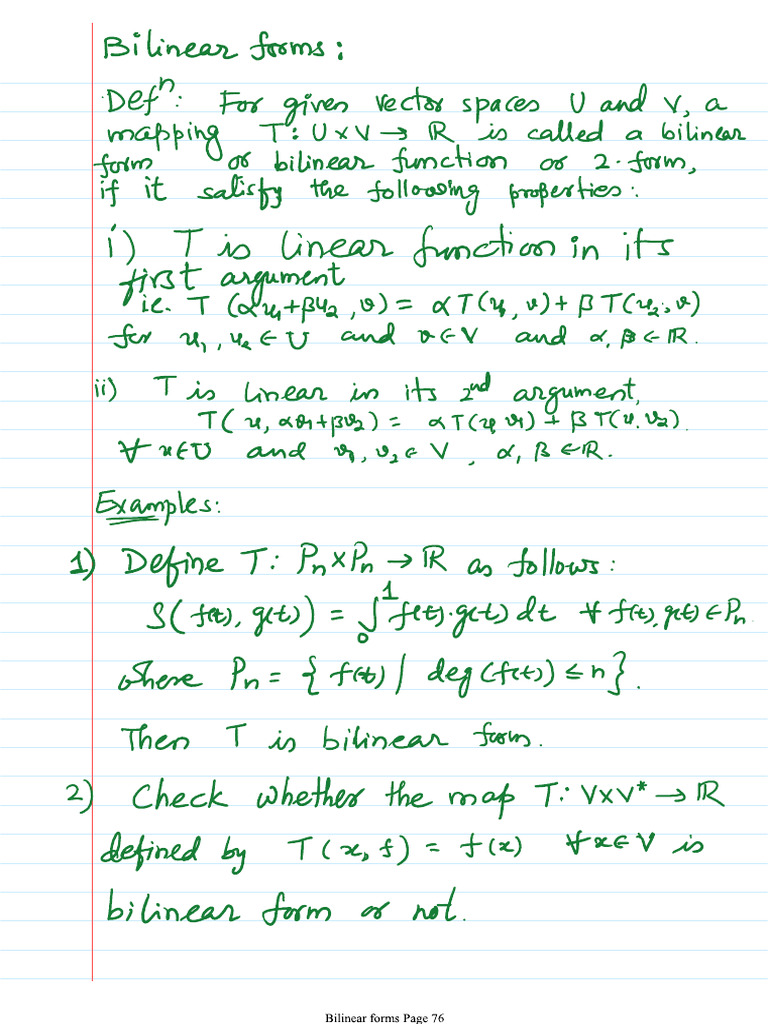 Bilinear forms:
Defⁿ: For given vector spaces U and V, a
mapping T: U×V → ℝ is called a bilinear
form or bilinear function or 2-form,
if it satisfy the following properties:
i) T is linear function in its
first argument
i.e. T (αu₁+βu₂, v) = αT(u₁, v) + βT(u₂, v)
for u₁, u₂ ∈ U and v ∈ V and α, β ∈ ℝ.
ii) T is linear in its 2nd argument,
T(u, αv₁+βv₂) = αT(u, v₁) + βT(u, v₂).
∀ u∈U and v₁, v₂ ∈ V, α, β ∈ ℝ.
Examples:
1) Define T: Pₙ×Pₙ → ℝ as follows:
S(f(t), g(t)) = ∫₀¹ f(t)·g(t) dt ∀ f(t), g(t) ∈ Pₙ
where Pₙ = { f(t) | deg(f(t)) ≤ n }.
Then T is bilinear form.
2) Check whether the map T: V×V* → ℝ
defined by T(x, f) = f(x) ∀x∈V is
bilinear form or not.
Bilinear forms Page 76